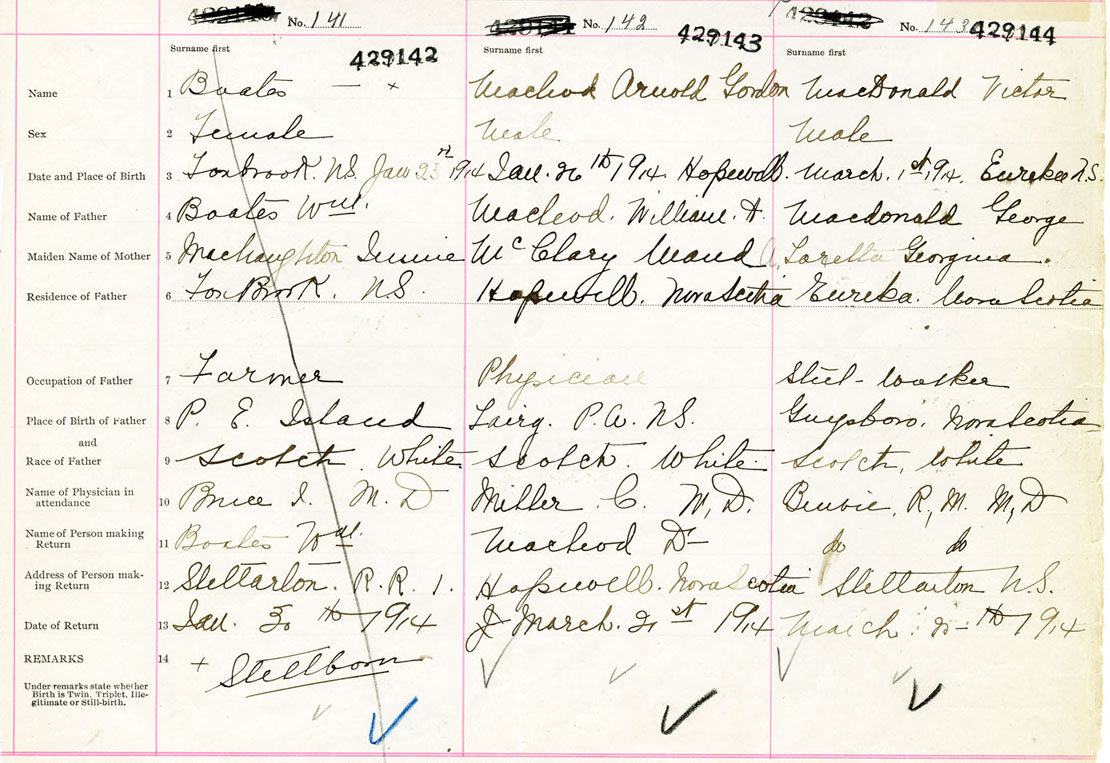 No. 141 No. 142 No. 143
429142 429143 429144
Surname first Surname first Surname first
Name 1 Boates — × Macleod Arnold Gordon MacDonald Victor
Sex 2 Female Male Male
Date and Place of Birth 3 Foxbrook. N.S. Jan 23rd 1914 Jan. 26th 1914 Hopewell. March. 1st, 1914. Eureka N.S.
Name of Father 4 Boates Wm. Macleod. William. A. Macdonald George
Maiden Name of Mother 5 MacNaughton Jennie McClary Maud A. Loretta Georgina.
Residence of Father 6 FoxBrook. N.S. Hopewell. Nova Scotia Eureka. Nova Scotia
Occupation of Father 7 Farmer Physician Steel-worker
Place of Birth of Father 8 P. E. Island Lairg. P.O. N.S. Guysboro. Nova Scotia
and
Race of Father 9 Scotch. White Scotch. White. Scotch, White
Name of Physician in
attendance 10 M. D Miller. C. M, D. R, M. M, D
Name of Person making
Return 11 Boates Wm. Macleod Dr do do
Address of Person mak-
ing Return 12 Stellarton. R. R. 1. Hopewell. Nova Scotia Stellarton N.S.
Date of Return 13 Jan. 30th 1914 March. 21st 1914 March 1914
REMARKS 14 + Stillborn
Under remarks state whether
Birth is Twin, Triplet, Ille-
gitimate or Still-birth.